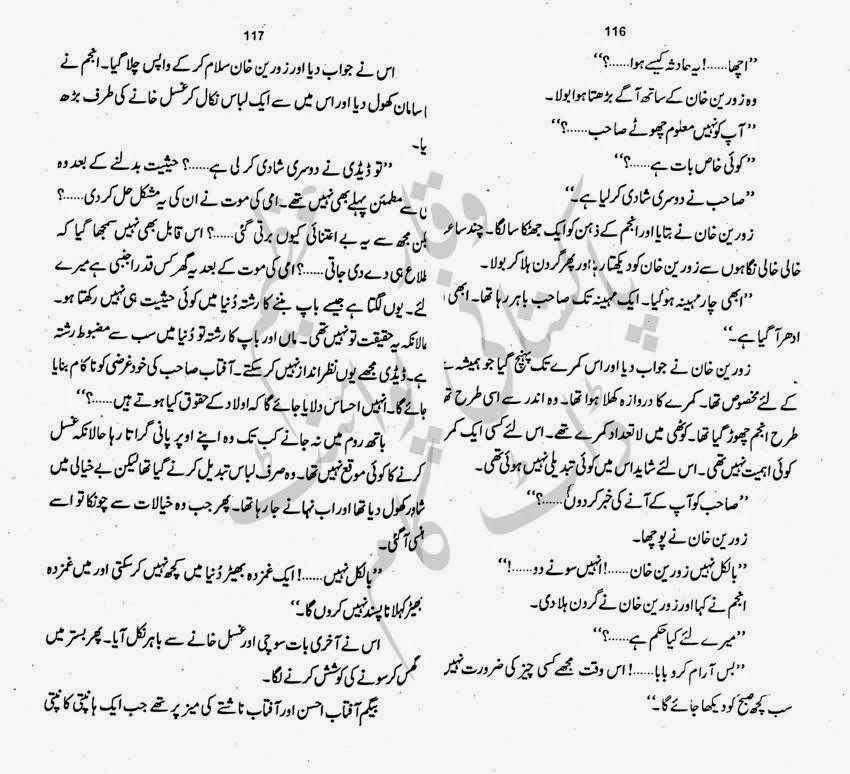 116
’’اچھا......! یہ حادثہ کیسے ہوا......؟‘‘
وہ زورین خان کے ساتھ آگے بڑھتا ہوا بولا۔
’’آپ کو نہیں معلوم چھوٹے صاحب......؟‘‘
’’کوئی خاص بات ہے......؟‘‘
’’صاحب نے دوسری شادی کرلیا ہے۔‘‘
زورین خان نے بتایا اور انجم کے ذہن کو ایک جھٹکا سا لگا۔ چند ساع
خالی خالی نگاہوں سے زورین خان کو دیکھتا رہا اور پھر گردن ہلا کر بولا۔
’’ابھی چار مہینہ ہوگیا۔ ایک مہینہ تک صاحب باہر رہا تھا۔ ابھی
ادھر آگیا ہے۔‘‘
زورین خان نے جواب دیا اور اس کمرے تک پہنچ گیا جو ہمیشہ
کے لئے مخصوص تھا۔ کمرے کا دروازہ کھلا ہوا تھا۔ وہ اندر سے اسی طرح تھ
طرح انجم چھوڑ گیا تھا۔ کوٹھی میں لاتعداد کمرے تھے۔ اس لئے کسی ایک کمر
کوئی اہمیت نہیں تھی۔ اس لئے شاید اس میں کوئی تبدیلی نہیں ہوئی تھی۔
’’صاحب کو آپ کے آنے کی خبر کردوں......؟‘‘
زورین خان نے پوچھا۔
’’بالکل نہیں زورین خان......! انہیں سونے دو......!‘‘
انجم نے کہا اور زورین خان نے گردن ہلا دی۔
’’میرے لئے کیا حکم ہے......؟‘‘
’’بس آرام کرو بابا......! اس وقت مجھے کسی چیز کی ضرورت نہیں
سب کچھ صبح کو دیکھا جائے گا۔‘‘
117
اس نے جواب دیا اور زورین خان سلام کر کے واپس چلا گیا۔ انجم نے
سامان کھول دیا اور اس میں سے ایک لباس نکال کر غسل خانے کی طرف بڑھ
یا۔
’’تو ڈیڈی نے دوسری شادی کر لی ہے......؟ حیثیت بدلنے کے بعد وہ
ں سے مطمئن پہلے بھی نہیں تھے۔ امی کی موت نے ان کی یہ مشکل حل کر دی......؟
کن مجھ سے یہ بے اعتنائی کیوں برتی گئی......؟ اس قابل بھی نہیں سمجھا گیا کہ
طلاع ہی دے دی جاتی......؟ امی کی موت کے بعد یہ گھر کس قدر اجنبی ہے میرے
لئے۔ یوں لگتا ہے جیسے باپ بننے کا رشتہ دُنیا میں کوئی حیثیت ہی نہیں رکھتا ہو۔
مالانکہ یہ حقیقت تو نہیں تھی۔ ماں اور باپ کا رشتہ تو دُنیا میں سب سے مضبوط رشتہ
ہے۔ ڈیڈی مجھے یوں نظر انداز نہیں کرسکتے۔ آفتاب صاحب کی خود غرضی کو ناکام بنایا
جائے گا۔ انہیں احساس دلایا جائے گا کہ اولاد کے حقوق کیا ہوتے ہیں......؟‘‘
باتھ روم میں نہ جانے کب تک وہ اپنے اوپر پانی گراتا رہا حالانکہ غسل
کرنے کا کوئی موقع نہیں تھا۔ وہ صرف لباس تبدیل کرنے گیا تھا لیکن بے خیالی میں
شاور کھول دیا تھا اور اب نہائے جا رہا تھا۔ پھر جب وہ خیالات سے چونکا تو اسے
ہنسی آگئی۔
’’بالکل نہیں......! ایک غمزدہ بھیڑ دُنیا میں کچھ نہیں کرسکتی اور میں غمزدہ
بھیڑ کہلانا پسند نہیں کروں گا۔‘‘
اس نے آخری بات سوچی اور غسل خانے سے باہر نکل آیا۔ پھر بستر میں
گھس کر سونے کی کوشش کرنے لگا۔
بیگم آفتاب احسن اور آفتاب ناشتے کی میز پر تھے جب ایک ہانپتی کانپتی